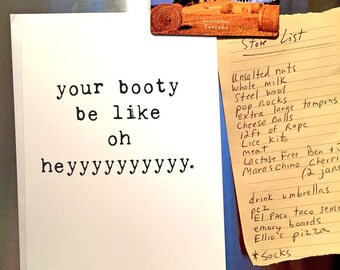 your booty
be like
oh
heyyyyyyyyyy.
Store List
Unsalted nuts
whole milk
Steel wool
pop rocks
extra large tampons
Cheese Balls
12ft of Rope
Lice kit
meat
Lactose Free Ben +
Maraschino Cherri
(2 jars
drink umbrellas
pez
El Paso taco
emory boards
Ellio's pizza
*Socks